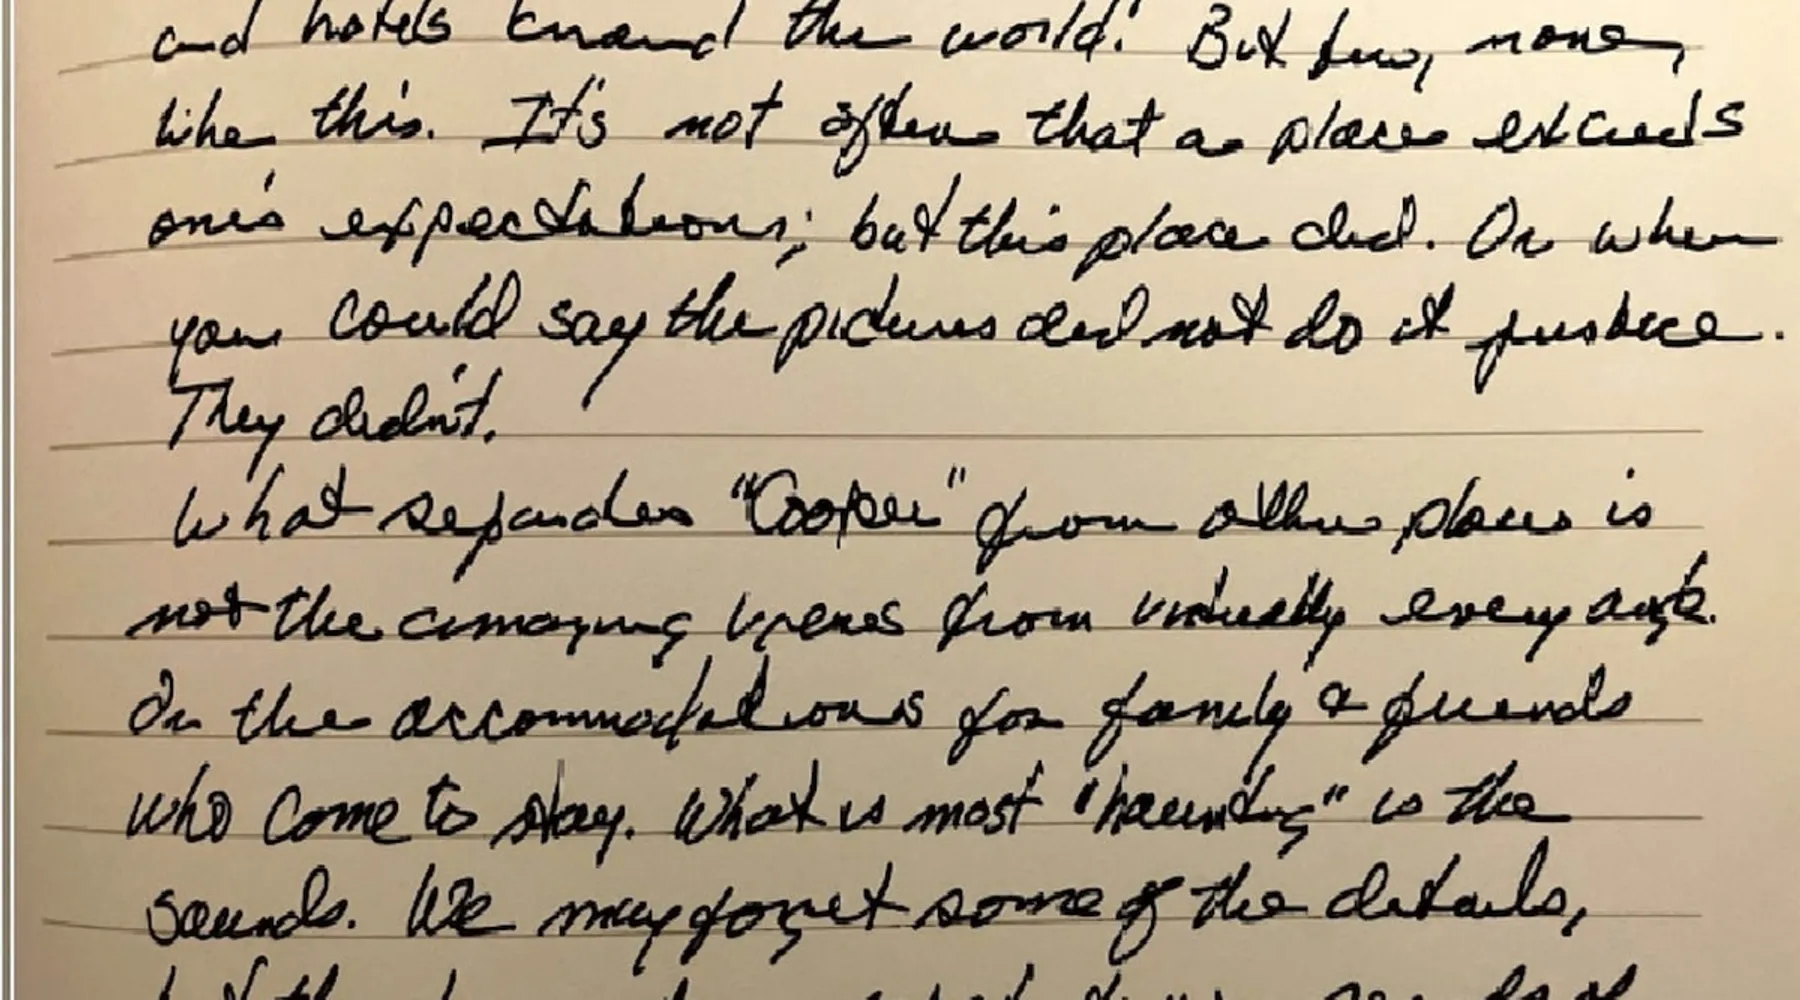 and hotels around the world! But few, none,
like this. It's not often that a place exceeds
one's expectations; but this place did. Or when
you could say the pictures did not do it justice.
They didn't.
What separates "Cooper" from other places is
not the amazing views from virtually every angle.
Or the accommodations for family & friends
who come to stay. What is most "haunting" is the
sounds. We may forget some of the details,